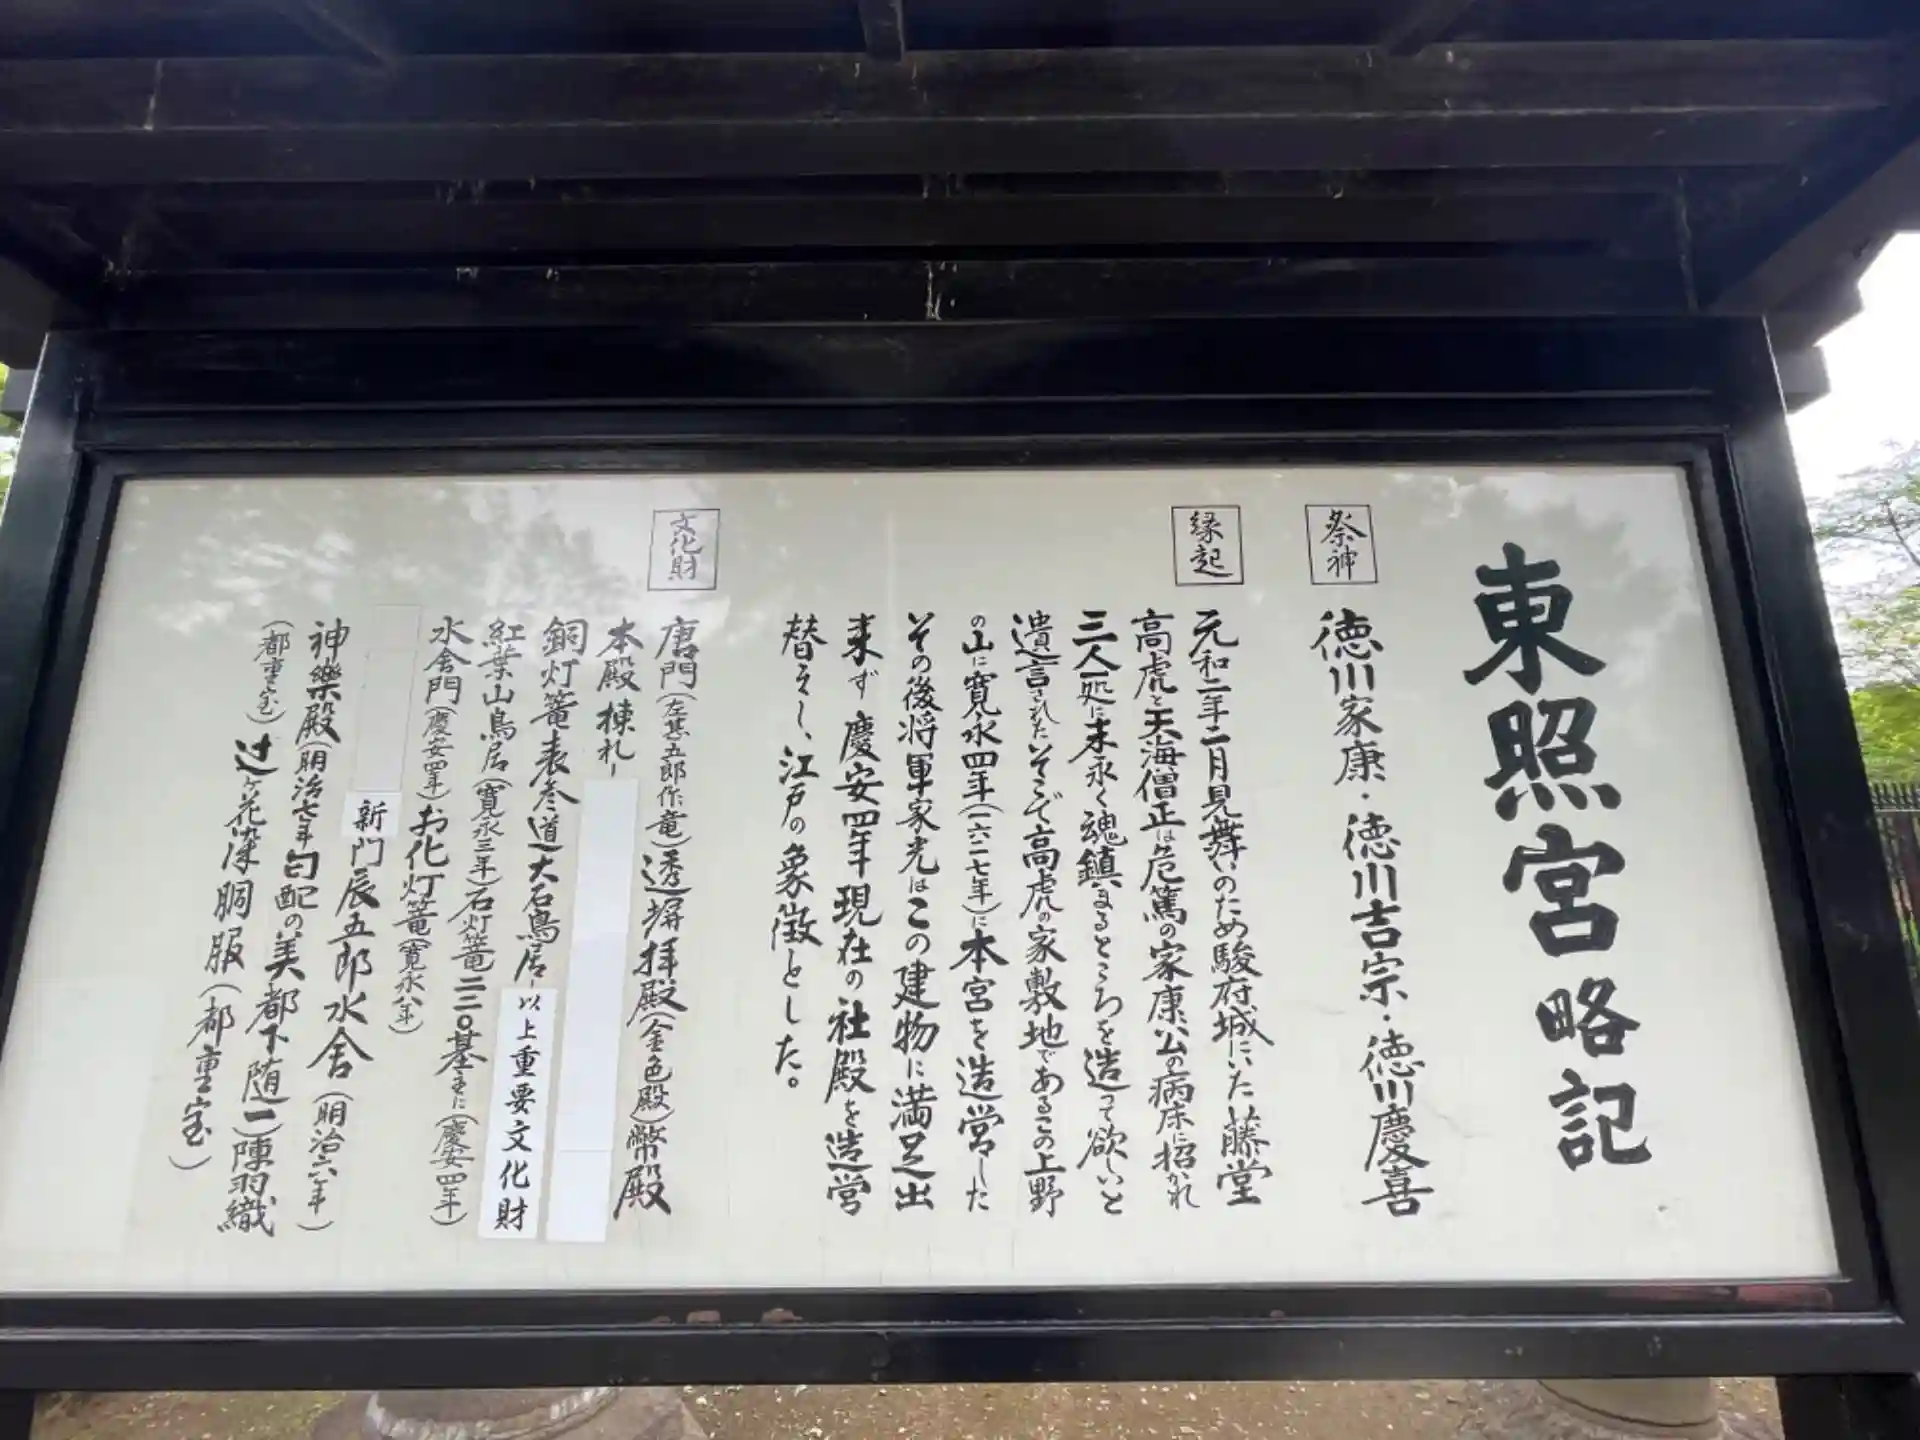 東照宮略記
祭神
徳川家康・徳川吉宗・徳川慶喜
縁起
元和二年二月見舞いのため駿府城にいた藤堂
高虎と天海僧正は危篤の家康公の病床に招かれ
三人一処に末永く魂鎮まるところを造って欲しいと
遺言されたそこで高虎の家敷地であるこの上野
の山に寛永四年(一六二七年)に本宮を造営した
その後将軍家光はこの建物に満足出
来ず慶安四年現在の社殿を造営
替えし、江戸の象徴とした。
文化財
唐門(左甚五郎作竜)透塀拝殿(金色殿)幣殿
本殿棟札ー
銅灯篭表参道大石鳥居ー以上重要文化財
紅葉山鳥居(寛永三年)石灯篭二二〇基(慶安四年)
水舎門(慶安四年)お化灯篭(寛永八年)
新門辰五郎水舎(明治六年)
神樂殿(明治七年勾配の美都下随一)陣羽織
(都重宝)辻ヶ花染胴服(都重宝)